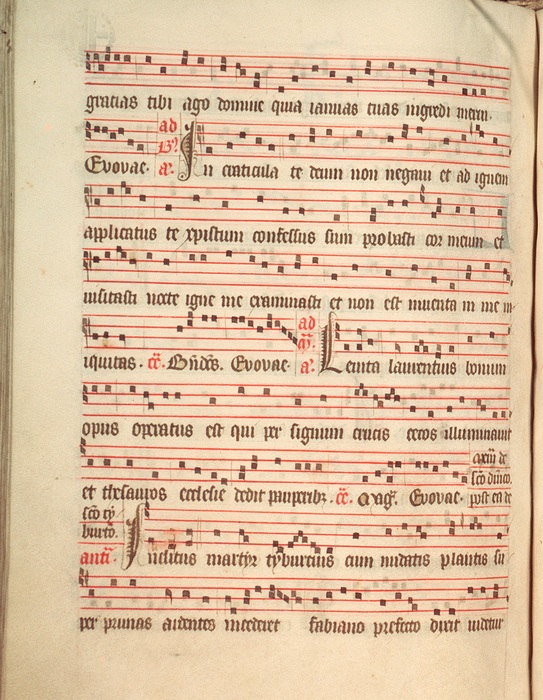 gratias tibi ago domine quia ianuas tuas ingredi merui.
Evovae. ad a. In craticula te deum non negaui et ad ignem
applicatus te xpistum confessus sum probasti cor meum et
uisitasti nocte igne me examinasti et non est inuenta in me in
iquitas. Evovae. ad a. Leuita laurentius bonum
opus operatus est qui per signum crucis cecos illuminauit
et thesauros ecclesie dedit pauperibz. Evovae.
sco ty
burto.
anti. Inclitus martyr tyburcius cum nudatis plantis su
per prunas ardentes incederet fabiano prefecto dixit uidetur